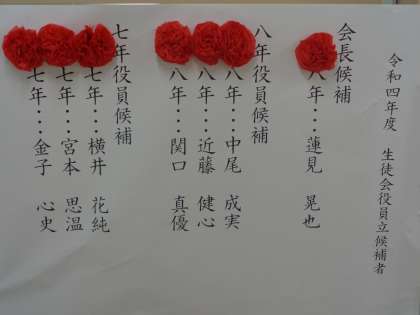 令和四年度 生徒会役員立候補者
会長候補
八年・・・蓮見 晃也
八年役員候補
八年・・・中尾 成実
八年・・・近藤 健心
八年・・・関口 真優
七年役員候補
七年・・・横井 花純
七年・・・宮本 思温
七年・・・金子 心史